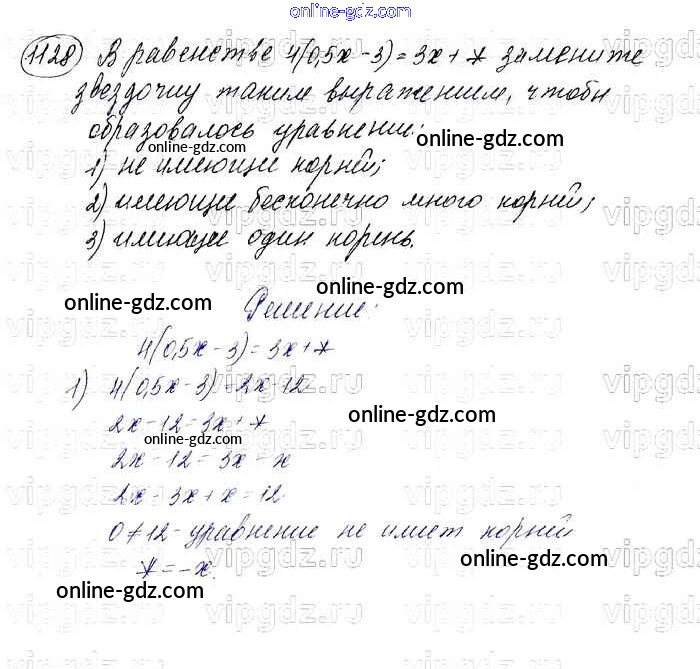 online-gdz.com
1128) В равенстве 4(0,5x - 3) = 3x + * замените
звездочку таким выражением, чтобы
образовалось уравнение:
online-gdz.com
1) не имеющее корней;
2) имеющее бесконечно много корней;
3) имеющее один корень.
online-gdz.com
online-gdz.com
Решение:
4(0,5x - 3) = 3x + *
1) 4(0,5x - 3) = 2x - 12
online-gdz.com
2x - 12 = 3x + *
online-gdz.com
2x - 12 = 3x - x
2x - 3x + x = 12
0 ≠ 12 - уравнение не имеет корней
online-gdz.com
* = -x.
online-gdz.com